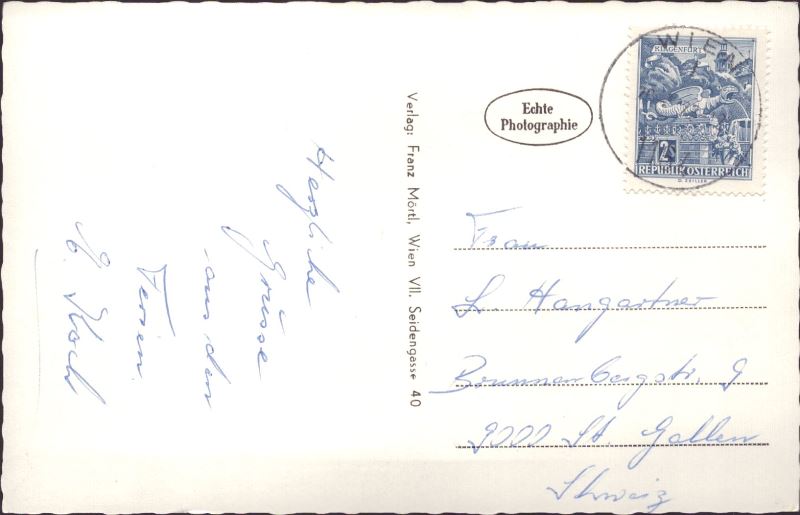 Herzliche
Grüsse
aus den
Ferien
E. Koch
Verlag: Franz Mörtl, Wien VII. Seidengasse 40
Echte
Photographie
WIEN
KLAGENFURT
2S
REPUBLIK ÖSTERREICH
Frau
L. Hangartner
Brunnenbergstr. 9
9000 St. Gallen
Schweiz